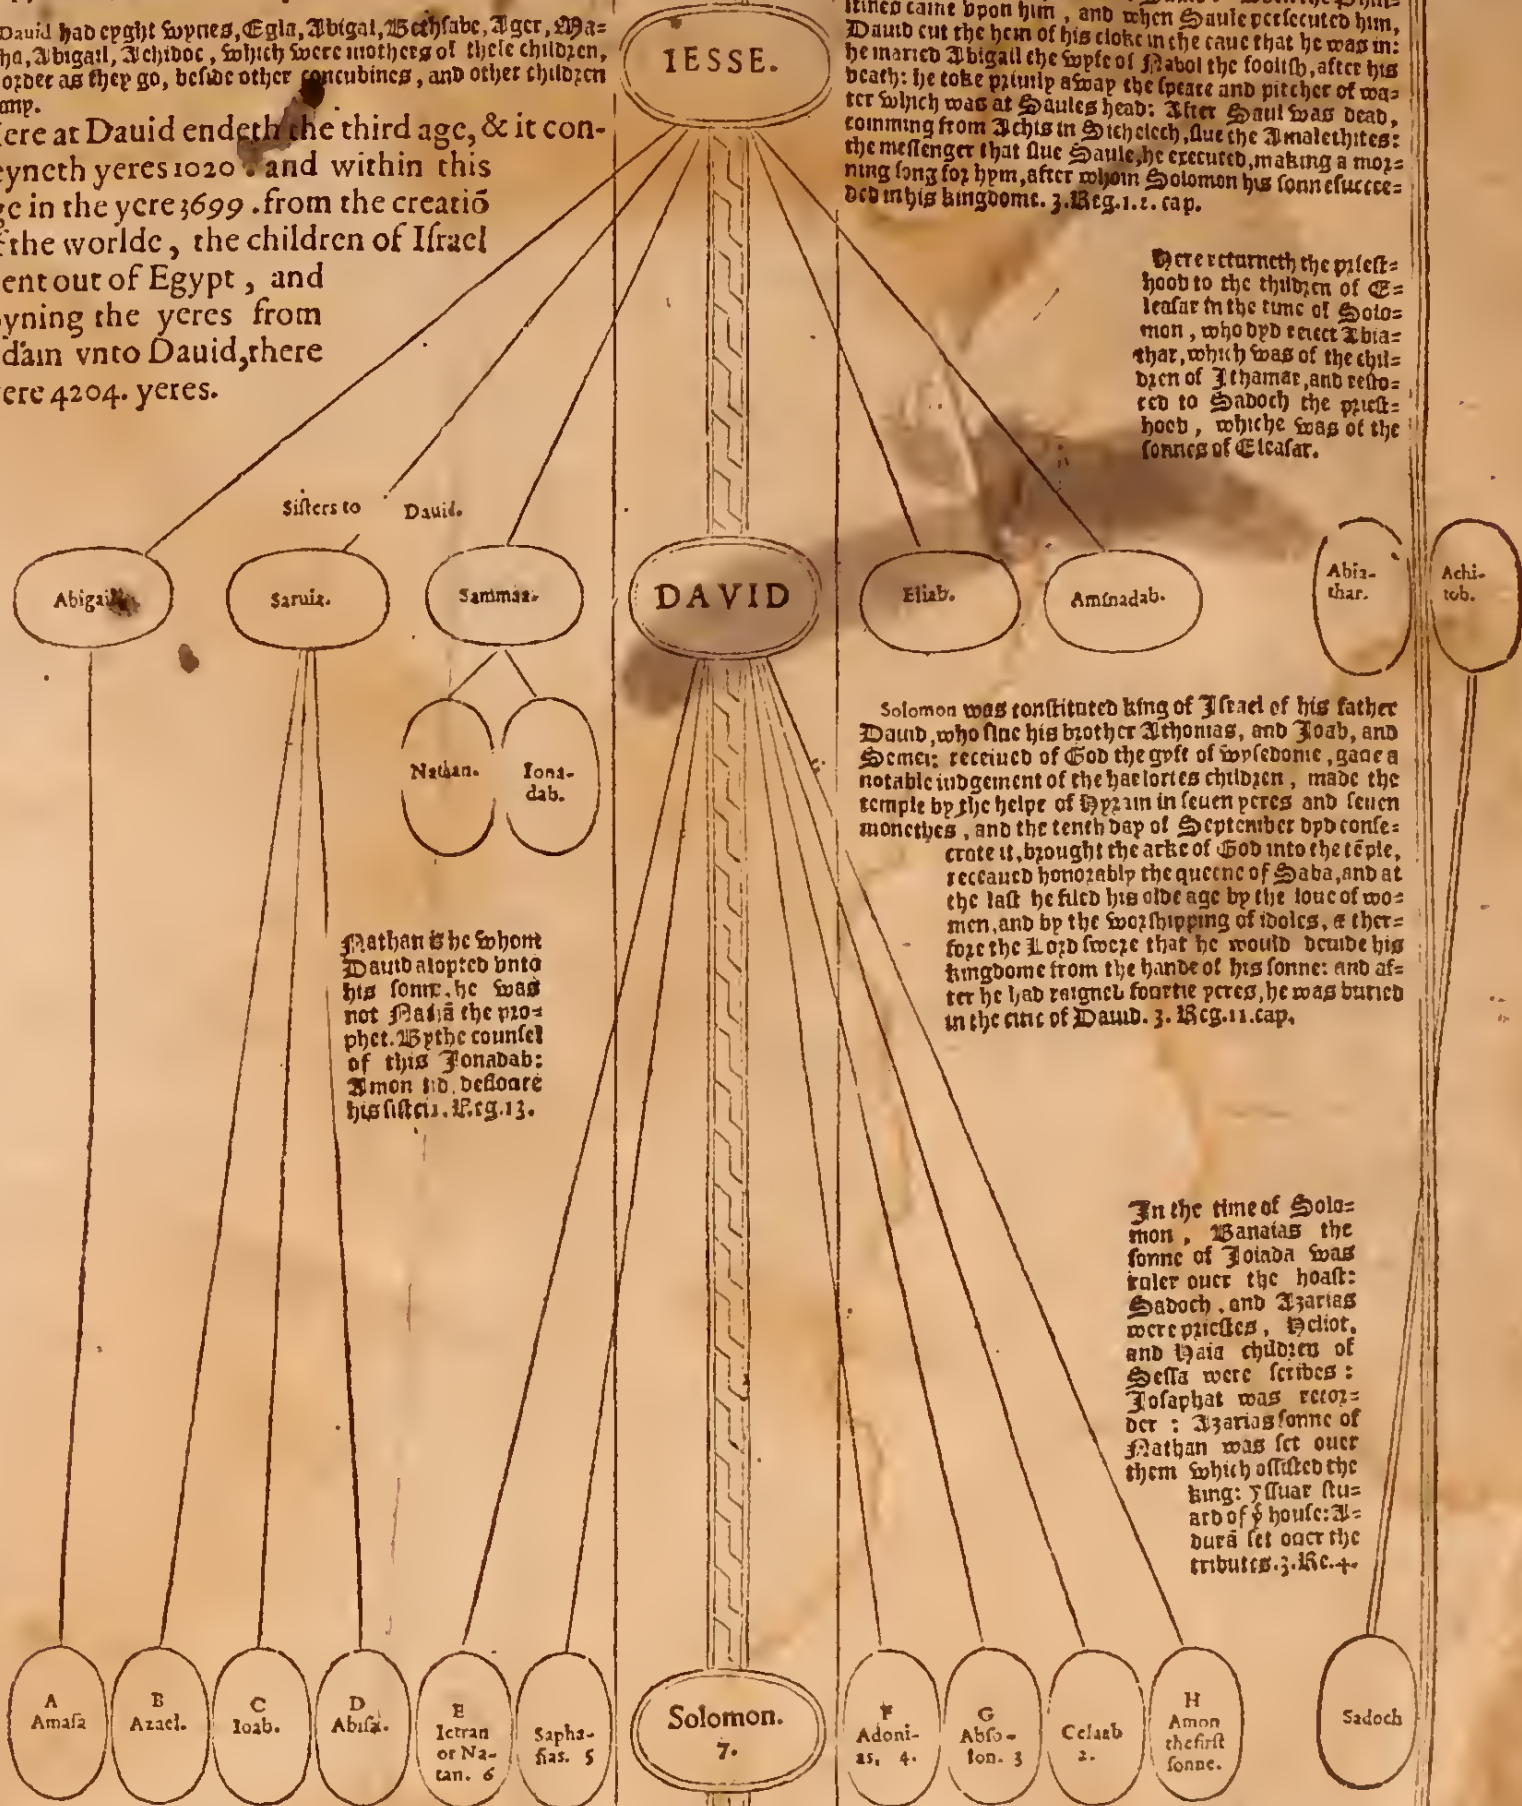 Dauid had eyght wyues, Egla, Abigal, Bethsabe, Ager, Ma=
ha, Abigail, Achidoc, which were mothers of these children,
order as they go, beside other concubines, and other children
any.
ere at Dauid endeth the third age, & it con-
eyneth yeres 1020. and within this
ge in the yere 3699. from the creatiō
f the worlde, the children of Israel
ent out of Egypt, and
oyning the yeres from
dam vnto Dauid, there
ere 4204. yeres.
IESSE.
stines came vpon him, and when Saule persecuted him,
Dauid cut the hem of his cloke in the caue that he was in:
he maried Abigail the wyfe of Nabol the foolish, after his
death: he toke priuily away the speare and pitcher of wa=
ter which was at Saules head: After Saul was dead,
comming from Achis in Sichelech, slue the Amalethites:
the messenger that slue Saule, he executed, making a mor=
ning song for hym, after whom Solomon his sonne succee=
ded in his kingdome. 3. Reg. 1. 2. cap.
Here returneth the priest=
hood to the children of E=
leasar in the time of Solo=
mon, who dyd reiect Abia=
thar, which was of the chil=
dren of Ithamar, and resto=
red to Sadoch the priest=
hood, whiche was of the
sonnes of Eleasar.
Sisters to Dauid.
Abigail
Saruia.
Sammaa.
DAVID
Eliab.
Aminadab.
Abia-
thar.
Achi-
tob.
Nathan.
Iona-
dab.
Solomon was constituted king of Israel of his father
Dauid, who slue his brother Athonias, and Joab, and
Semei: receiued of God the gyft of wysedome, gaue a
notable iudgement of the harlottes children, made the
temple by the helpe of Hyram in seuen yeres and seuen
monethes, and the tenth day of September dyd conse=
crate it, brought the arke of God into the tēple,
receaued honorably the queene of Saba, and at
the last he filed his olde age by the loue of wo=
men, and by the worshipping of idoles, & ther=
fore the Lord swere that he would deuide his
kingdome from the hande of his sonne: and af=
ter he had raigned fourtie yeres, he was buried
in the citie of Dauid. 3. Reg. 11. cap.
Nathan is he whom
Dauid adopted vnto
his sonne, he was
not Nathā the pro=
phet. By the counsel
of this Jonadab:
Amon did defloure
his sister. Reg. 13.
In the time of Solo=
mon, Banaias the
sonne of Joiada was
ruler ouer the hoast:
Sadoch, and Azarias
were priestes, Heliot,
and Haia children of
Sessa were scribes:
Josaphat was recor=
der: Azarias sonne of
Nathan was set ouer
them which assisted the
king: yssuar stu=
ard of þͤ house: A=
durā set ouer the
tributes. 3. Re. 4.
A
Amasa
B
Azael.
C
Ioab.
D
Abisa.
E
Ietran
or Na-
tan. 6
Sapha-
sias. 5
Solomon.
7.
F
Adoni-
as. 4.
G
Abso-
lon. 3
Celaab
2.
H
Amon
the first
sonne.
Sadoch